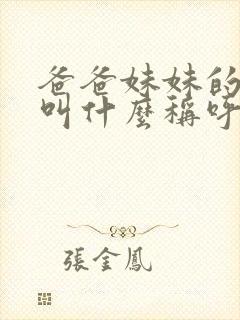 爸爸妹妹的
叫什麼稱呼
張金鳳